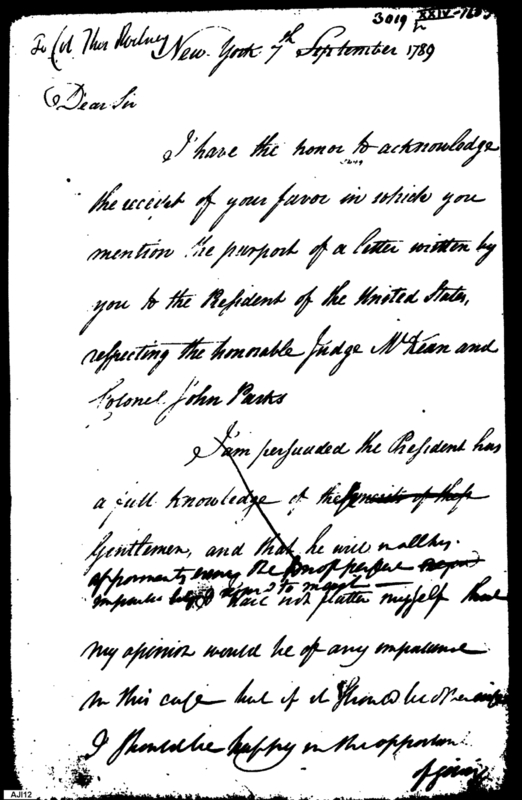 3019 XXIV-
To Col. Thos Rodney
New York 7th September 1789
Dear Sir
I have the honor to acknowledge
the receipt of your favor in which you
mention the purport of a letter written by
you to the President of the United States,
respecting the honorable Judge McKean and
Colonel John Parks
I am persuaded the President has
a full knowledge of the of these
Gentlemen, and that he will in all his
appointments the of perfect
to merit
I dare not flatter myself that
my opinion would be of any importance
in this case but if it should be otherwise
I should be happy in the opportun
of giving
AJI12